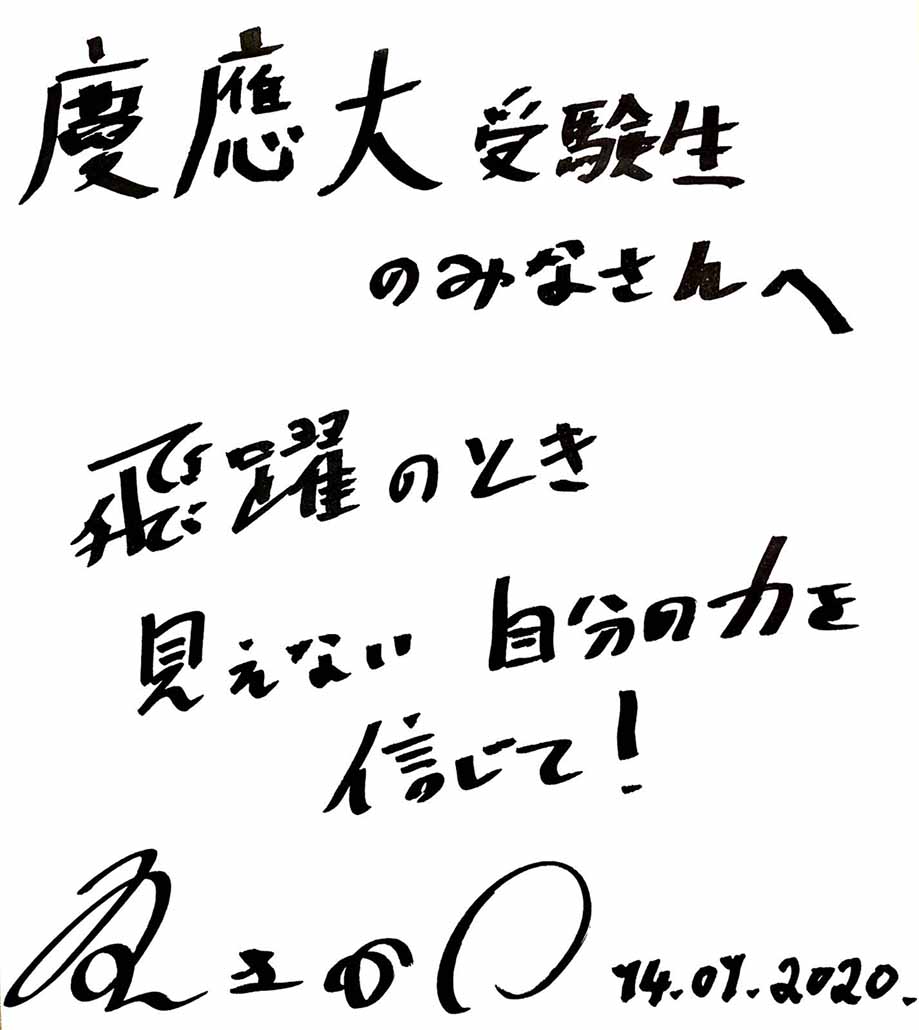 慶應大受験生
のみなさんへ
飛躍のとき
見えない 自分の力を
信じて!
14.01.2020.